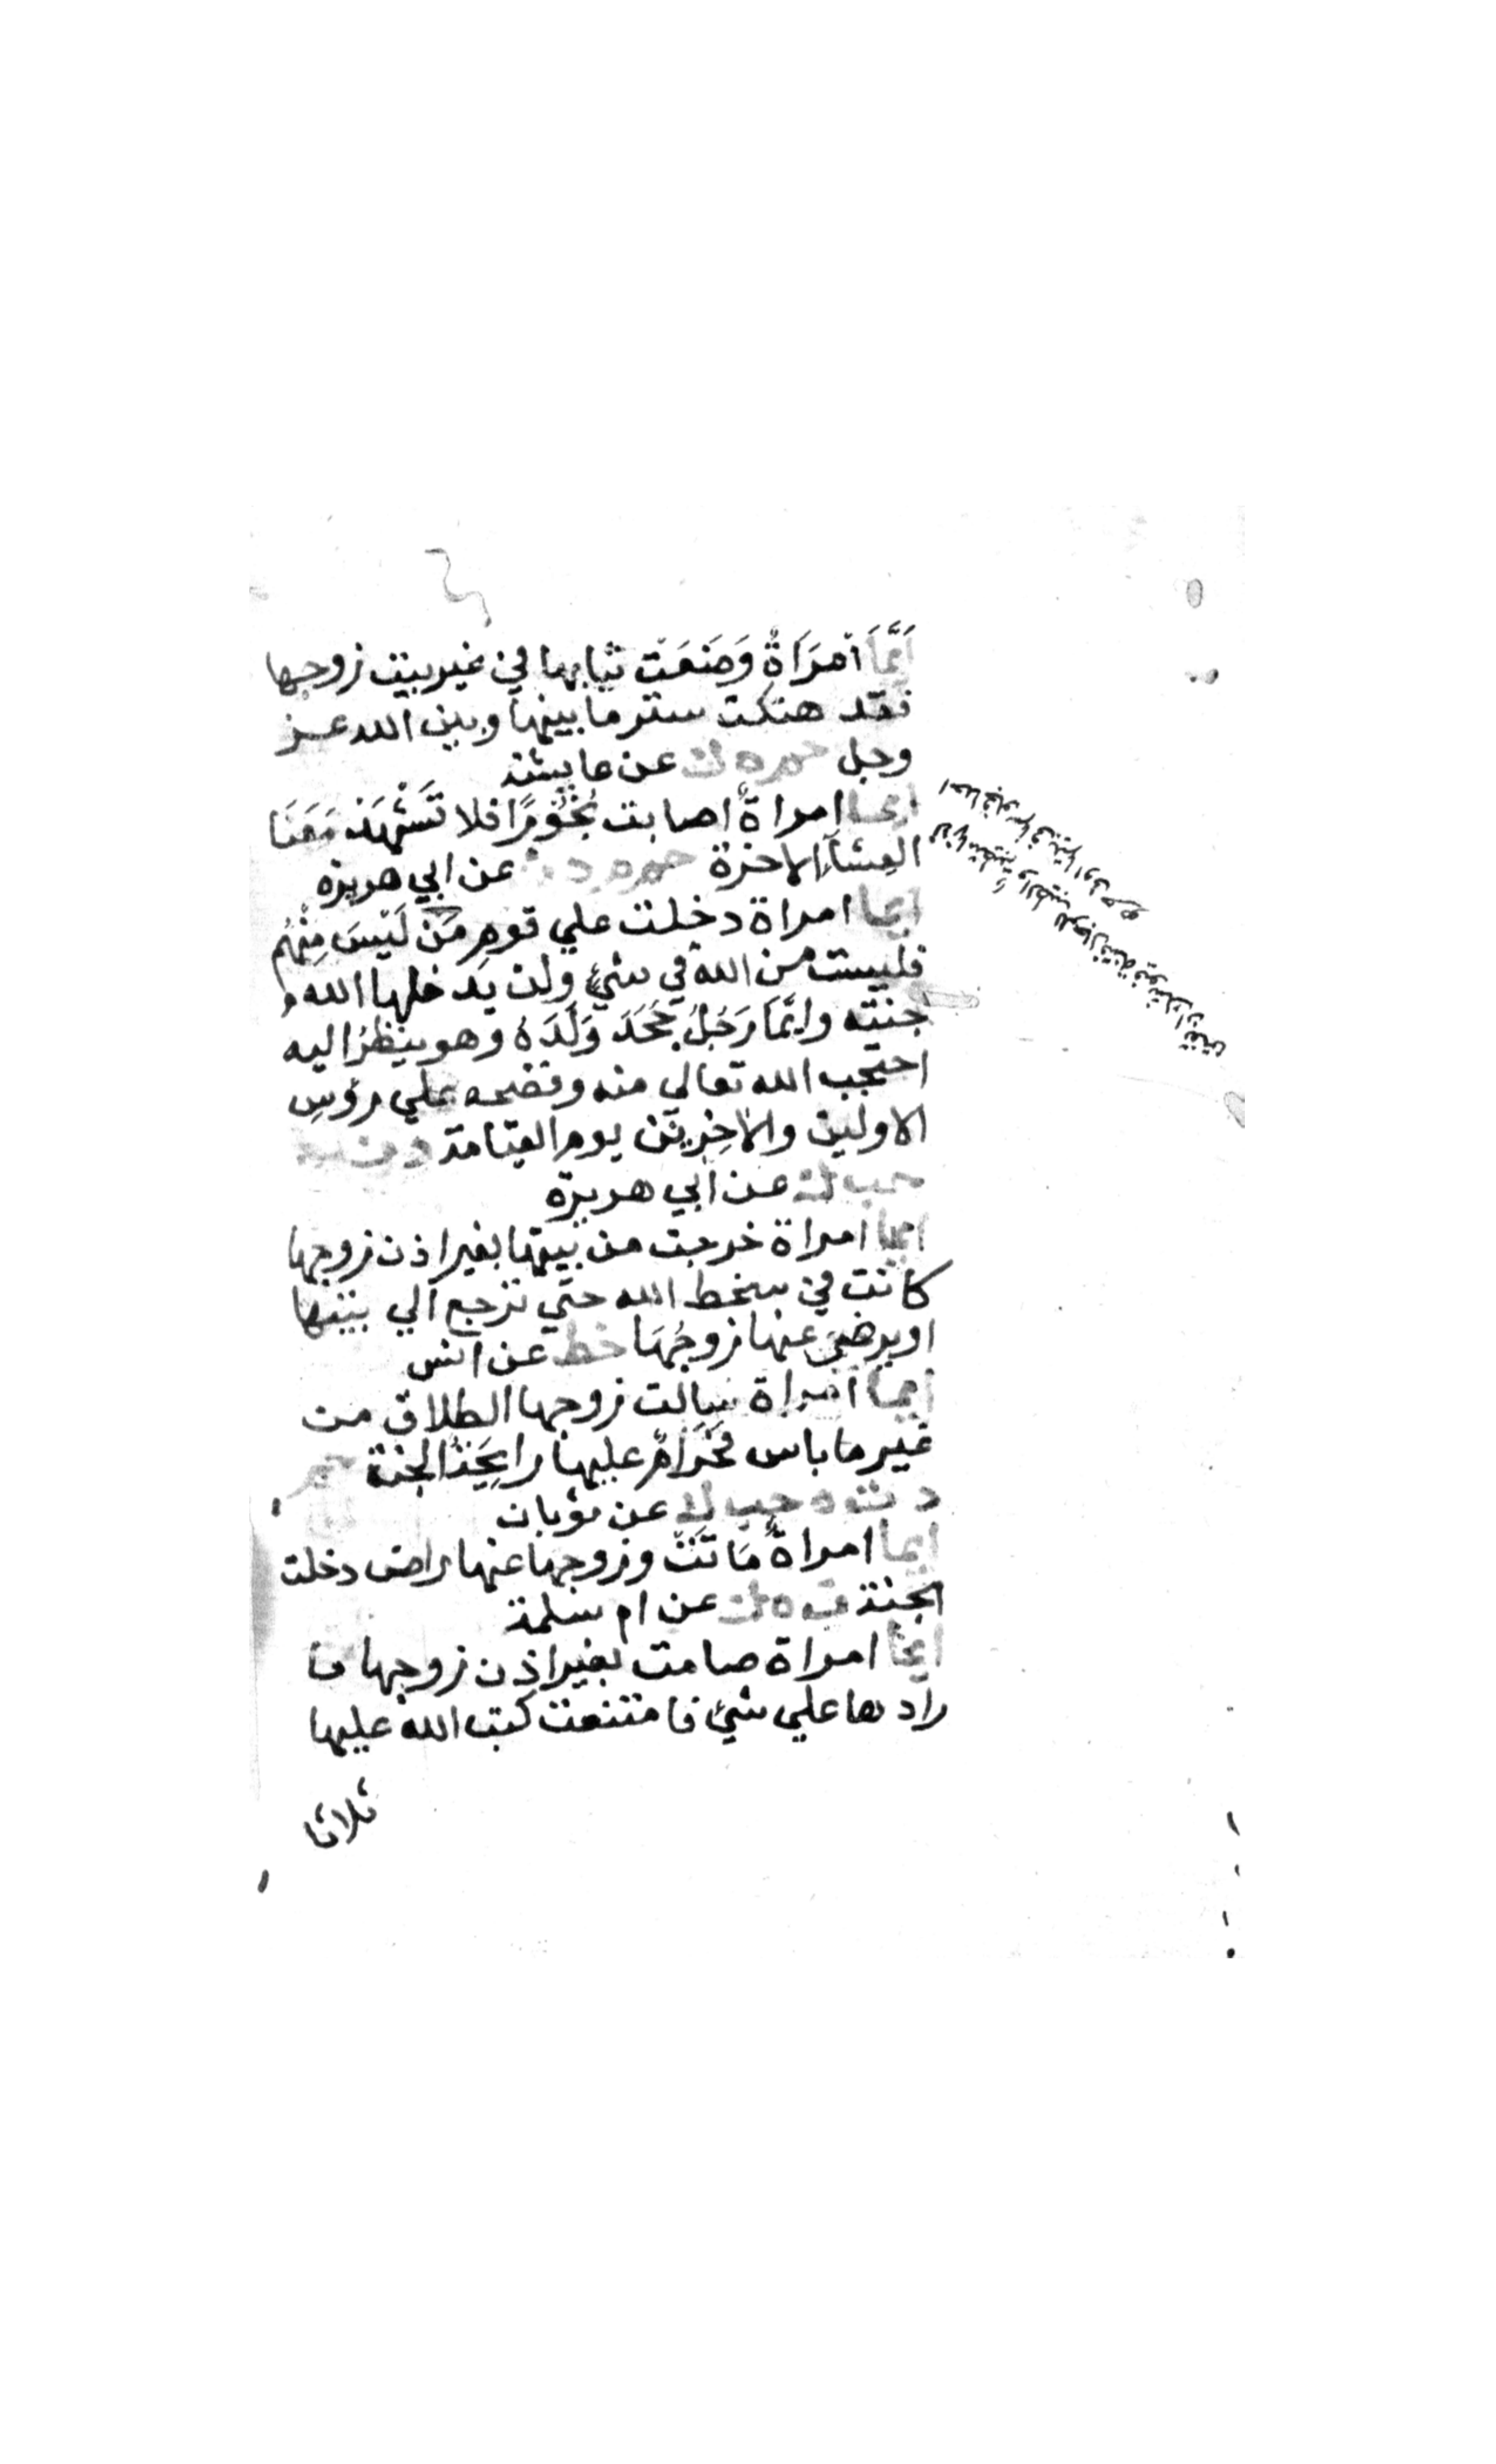 اَيَّمَا اَمرَاَةٌ وَضَعَت ثيابها في غير بيت زوجها
فقد هتكت ستر ما بينها وبين الله عز
وجل حم ه ك عن عايشة
ايما امراةٌ اصابت بُخُوْرًا فلا تَشْهَدْ مَعَنَا
العِشآء الاخرة حم م د ن عن ابي هريرة
ايما امراة دخلت علي قومٍ مَن لَيْسَ مِنْهُم
فليست من الله في شيءٍ ولن يدخلها الله
جنته وايَّمَا رَجُلٌ جَحَدَ وَلَدَهُ وهو ينظرُ اليه
احتجب الله تعالي منه وفضحه علي رؤسِ
الاولين والاخِرِيْن يوم القيامة د ن ه
حب ك عن ابي هريرة
ايما امراة خرجت من بيتها بغير اذن زوجها
كانت في سخط الله حتي ترجع الي بيتها
او يرضى عنها زوجُهَا خط عن انس
ايما امراة سالت زوجها الطلاق من
غير ما باس فَحَرَامٌ عليها رايِحَةُ الجنة حم
د ت ه حب ك عن ثوبان
ايما امراةٌ مَاتَتْ وزوجها عنها راض دخلت
الجنة ت ه ك عن ام سلمة
ايما امراة صامت بغير اذن زوجها فا
رادها علي شيء فامتنعت كتب الله عليها
ثلاثا